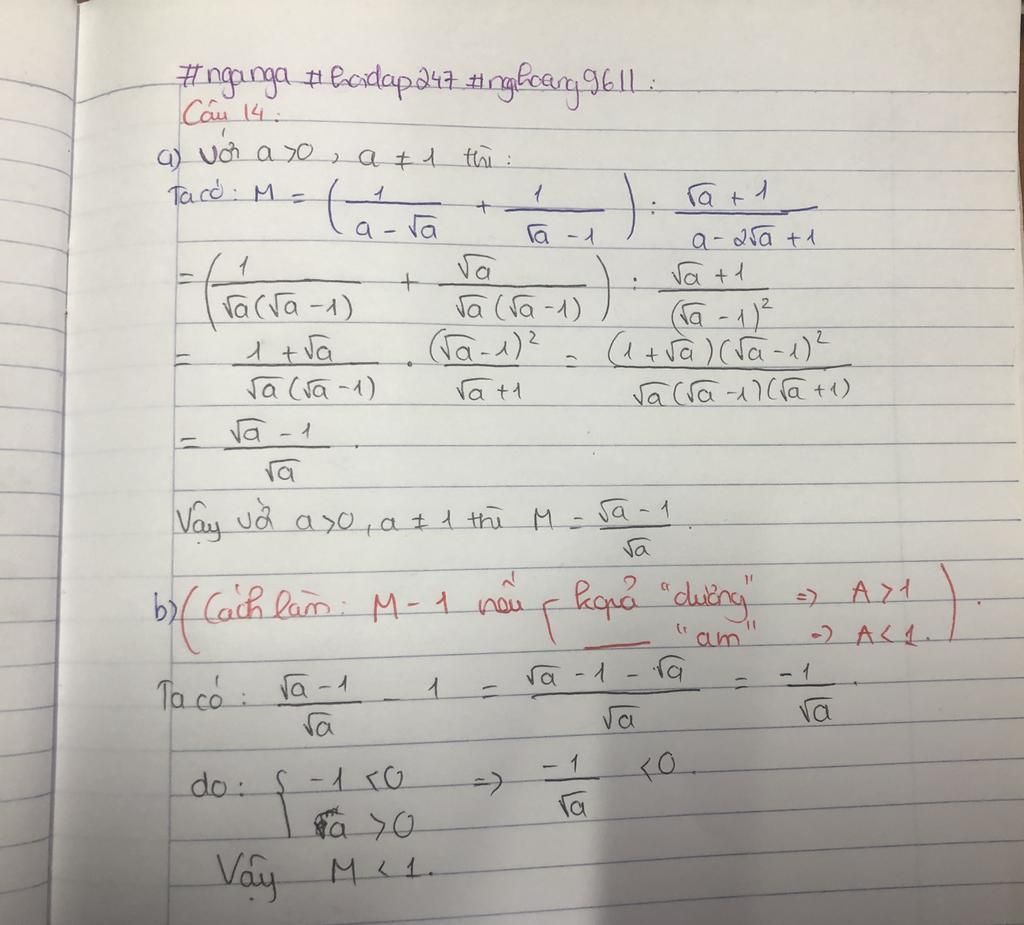 #nganga #hoidap247 #nghoang9611:
Câu 14:
a) Với a>0, a ≠ 1 thì:
Ta có: M = (1/(a - √a) + 1/(√a - 1)) : (√a + 1)/(a - 2√a + 1)
= (1/(√a(√a - 1)) + √a/(√a(√a - 1))) : (√a + 1)/(√a - 1)²
= (1 + √a)/(√a(√a - 1)) . (√a - 1)²/(√a + 1) = (1 + √a)(√a - 1)²/(√a(√a - 1)(√a + 1))
= (√a - 1)/√a .
Vậy với a>0, a ≠ 1 thì M = (√a - 1)/√a .
b) (Cách làm: M - 1 nếu { kquả "dương" => A > 1
___ "am" => A < 1.) .
Ta có: (√a - 1)/√a - 1 = (√a - 1 - √a)/√a = -1/√a .
do: { -1 < 0 => -1/√a < 0.
√a > 0
Vậy M < 1.